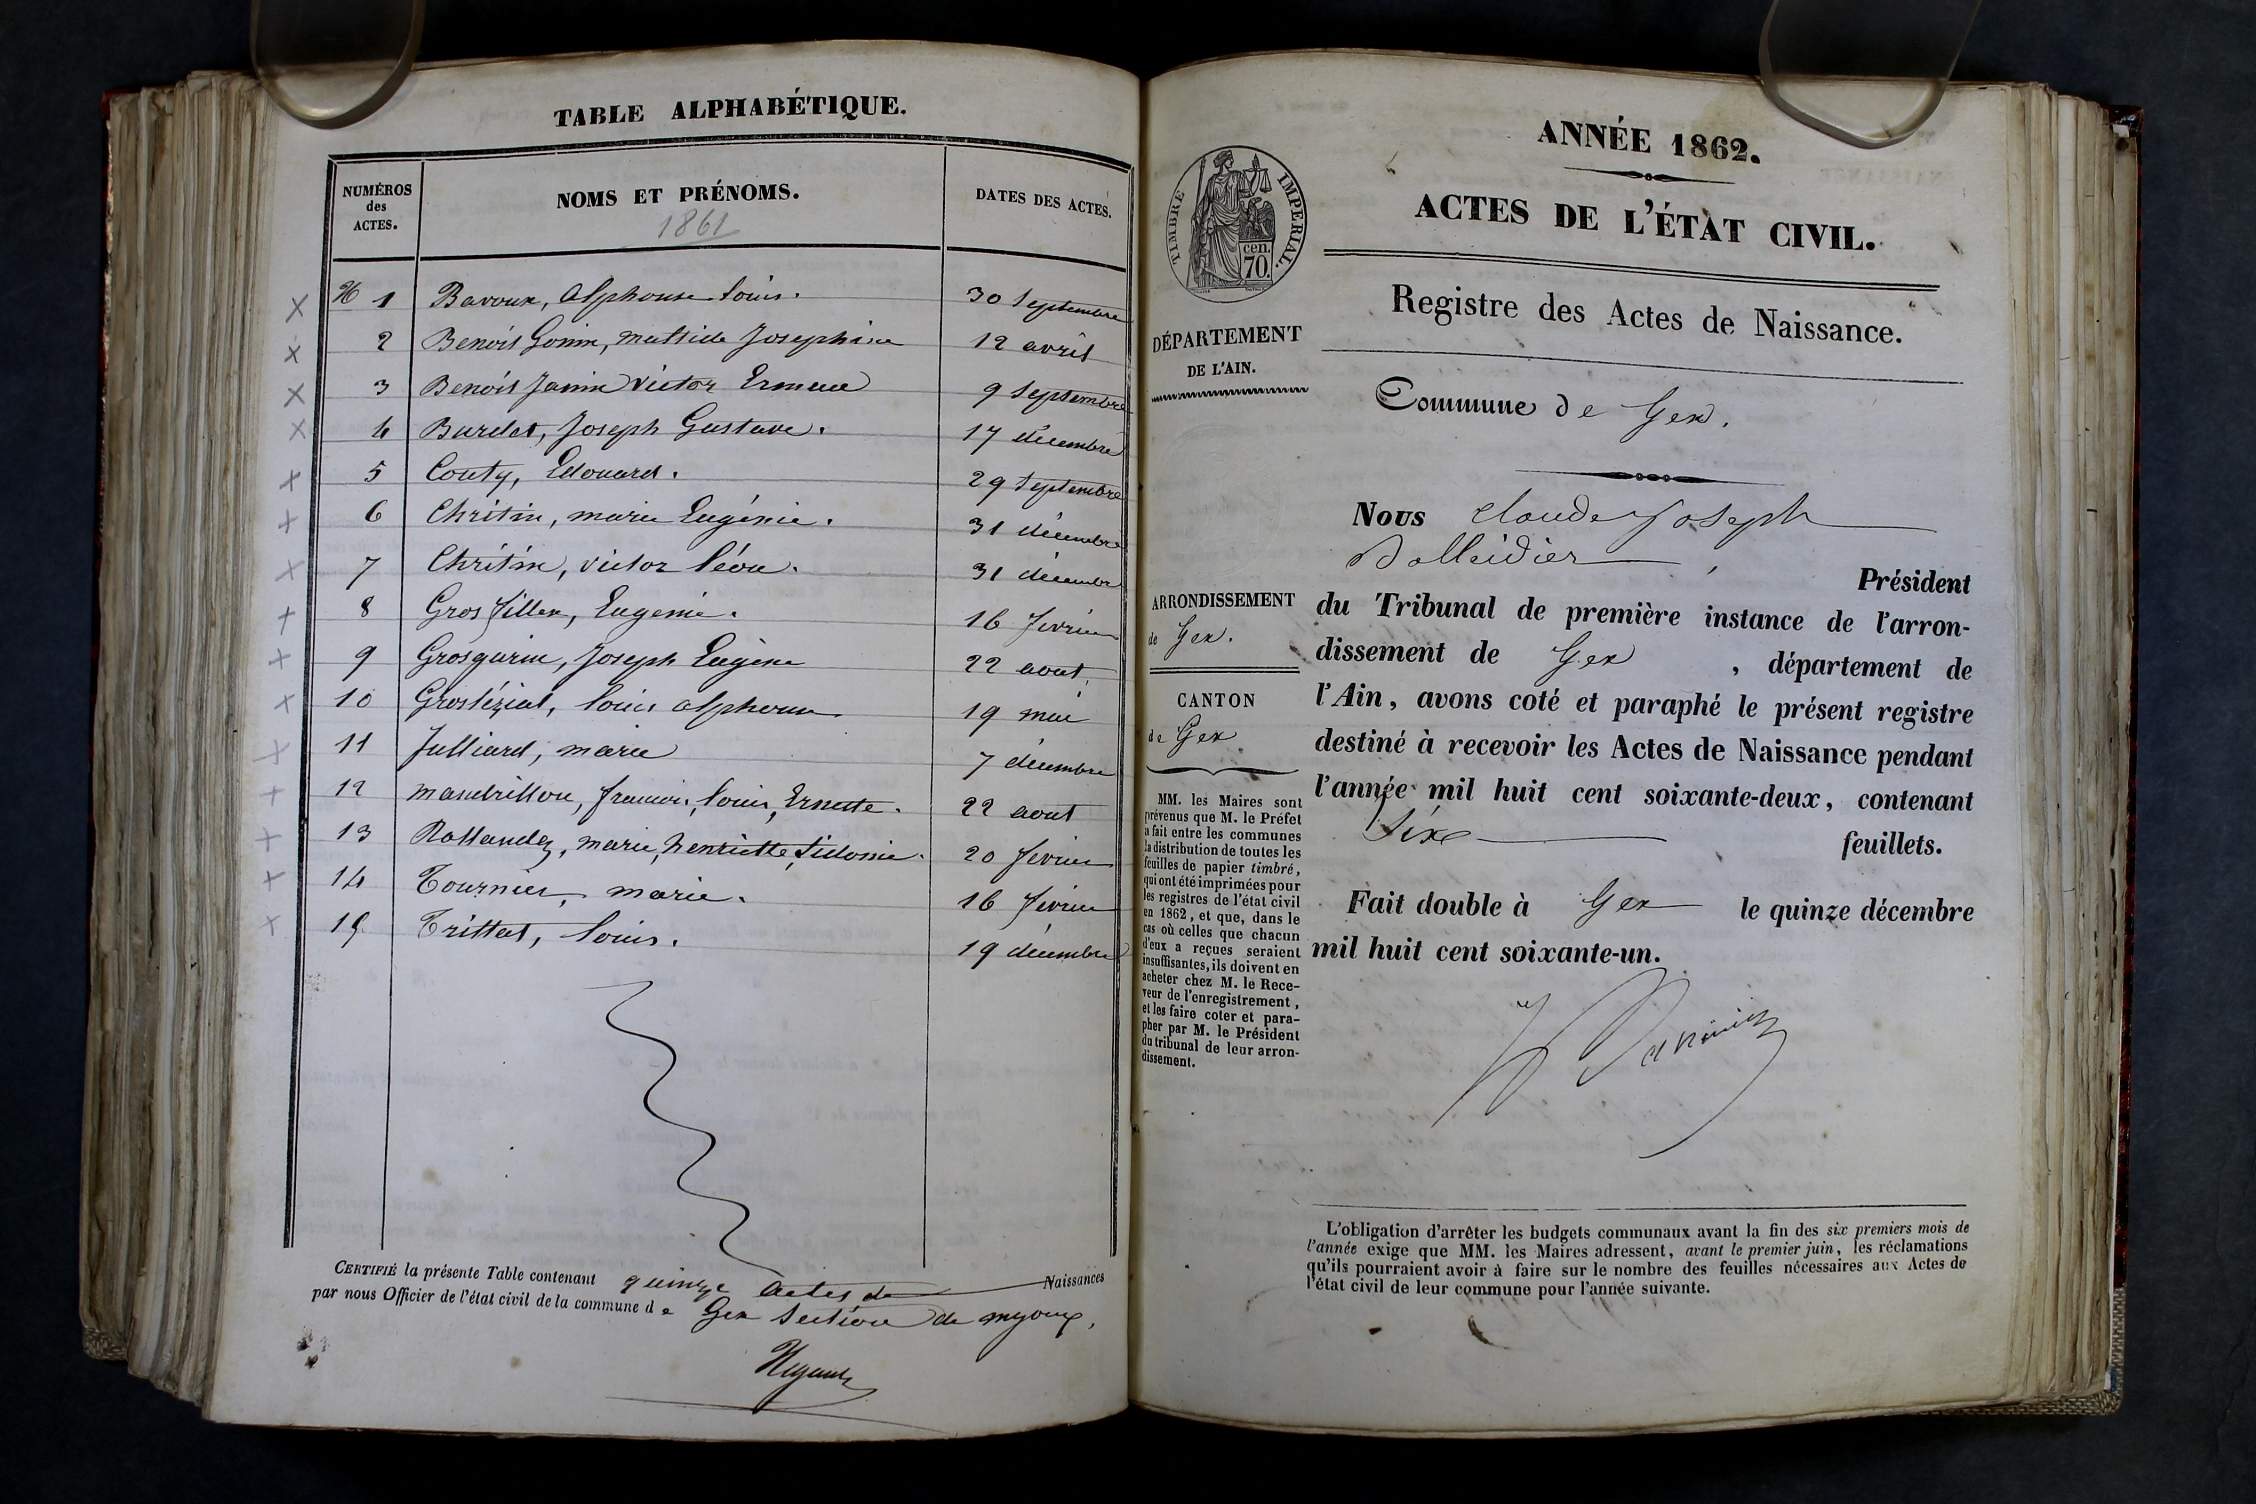 TABLE ALPHABÉTIQUE.
NUMÉROS des ACTES.
NOMS ET PRÉNOMS.
1861
DATES DES ACTES.
1 Bavoux, Alphonse Louis. 30 Septembre
2 Benoit Gonin, Mathilde Josephine 12 avril
3 Benoit Janin Victor 9 Septembre
4 Burdet, Joseph Gustave. 17 décembre
5 Couty, Edouard. 29 Septembre
6 Chritin, marie Eugénie. 31 décembre
7 Chritin, victor Léon. 31 décembre
8 Gros fillex, Eugenie. 16 fevrier
9 Grosgurin, Joseph Eugène 22 aout
10 Louis alphonse 19 mai
11 Julliard, marie 7 décembre
12 mandrillon, francois, Louis, Ernette. 22 aout
13 Rollandez, marie, henriette, Sidonie. 20 fevrier
14 Tournier, marie. 16 fevrier
15 Trittat, Louis. 19 décembre
CERTIFIÉ la présente Table contenant quinze actes de Naissances
par nous Officier de l'état civil de la commune de Gex Section de mijoux,
ANNÉE 1862.
ACTES DE L'ÉTAT CIVIL.
TIMBRE IMPERIAL.
cen.
70.
Registre des Actes de Naissance.
DÉPARTEMENT
DE L'AIN.
Commune de Gex.
Nous Claude Joseph
, Président
du Tribunal de première instance de l'arron-
dissement de Gex , département de
l'Ain, avons coté et paraphé le présent registre
destiné à recevoir les Actes de Naissance pendant
l'année mil huit cent soixante-deux, contenant
Six feuillets.
Fait double à Gex le quinze décembre
mil huit cent soixante-un.
ARRONDISSEMENT
de Gex.
CANTON
de Gex
MM. les Maires sont
prévenus que M. le Préfet
a fait entre les communes
la distribution de toutes les
feuilles de papier timbré,
qui ont été imprimées pour
les registres de l'état civil
en 1862, et que, dans le
cas où celles que chacun
d'eux a reçues seraient
insuffisantes, ils doivent en
acheter chez M. le Rece-
veur de l'enregistrement,
et les faire coter et para-
pher par M. le Président
du tribunal de leur arron-
dissement.
L'obligation d'arrêter les budgets communaux avant la fin des six premiers mois de
l'année exige que MM. les Maires adressent, avant le premier juin, les réclamations
qu'ils pourraient avoir à faire sur le nombre des feuilles nécessaires aux Actes de
l'état civil de leur commune pour l'année suivante.